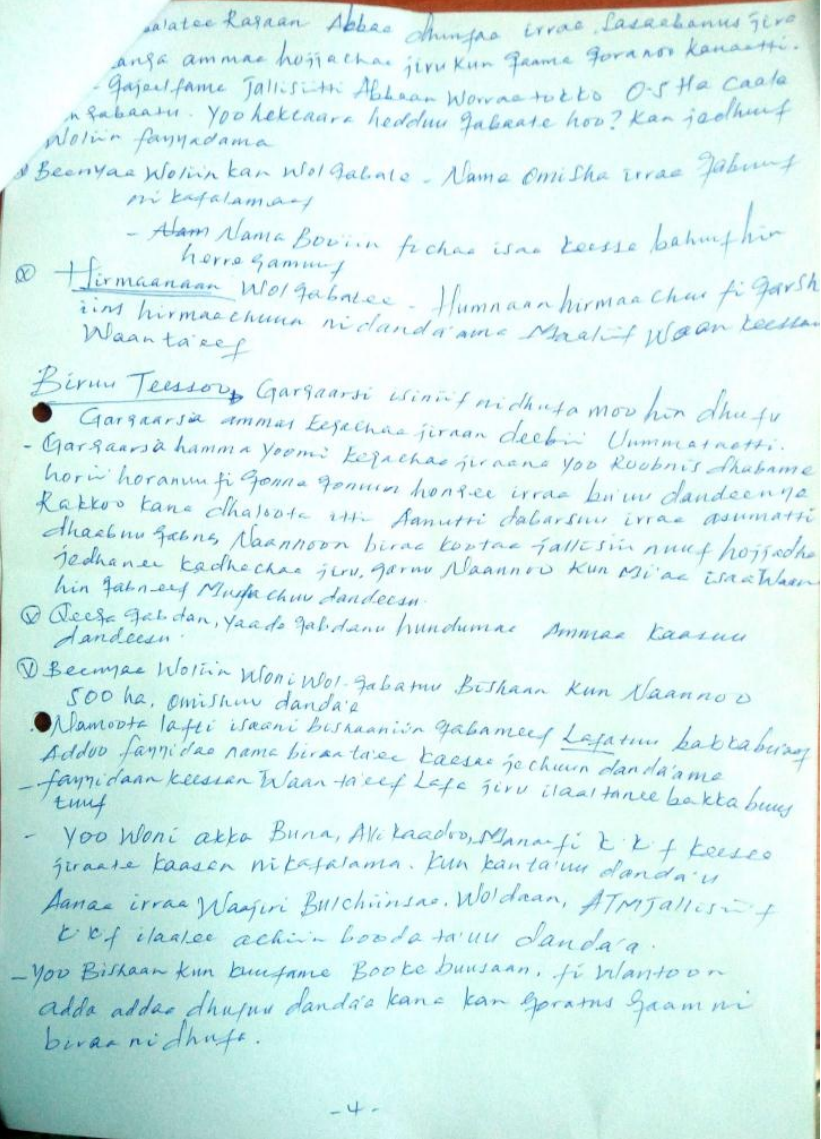 Ragaan Abbaa dhimfaa irraa Sasaabanus jira
ammaa hojjachaa jiru kun Qaama Qoranoo Kanaatti.
- Qajeelfama Jallisiitti Abbaan Worraa tokko 0.5 Ha Caala
Qabaatu. Yoo hektaara hedduu Qabaate hoo? Kan jedhuuf
Woliin fayyadama
Beenyaa Woliin Kan Wol Qabate - Nama Omisha irraa Qabuuf
ni kafalamaaf
- Nama Booiin fichaa isaa keessa bahuuf hin
herregamuuf
Hirmaanaan Wol Qabatee - Humnaan hirmaachuu fi
hirmaachuun ni danda'ama Maaliif Waan keessan
Waan ta'eef
Biruu Teessoo, Gargaarsi isiniif ni dhufa moo hin dhufu
Gargaarsa ammas Eegachaa jiraan deebii Uummataatti.
- Gargaarsa hamma yoomi Eegachaa jiraana Yoo Roobnis dhabame
horii horannu fi Qonna Qonnun hongee irraa bu'uu dandeenya
Rakkoo kana dhaloota itti Aanutti dabarsuu irraa asumatti
dhaabuu Qabna, Naannoon biraa kootaa jallisin nuuf hojjadha
jedhanee kadhachaa jiru, garuu Naannoo Kun Mi'aa isaa Waan
hin Qabneef Mufachuu dandeesu.
Qeeqa Qabdan, Yaada Qabdanu hundumaa Ammaa Kaasuu
dandeesu.
Beenyaa Woliin Woni Wol-Qabatu Bishaan Kun Naannoo
500 ha. Omishuu danda'a
Namoota lafti isaani bishaaniin Qabameef Lafatuu bakka bu'aaf
Adduo fayyidaa nama biraa ta'ee Kaesaa jechuun danda'ama
- fayyidaan keessan Waan ta'eef Lafa jiru ilaaltanee bakka buus
tuuf
- Yoo Woni akka Buna, Avikaadoo, Mana fi k.k.f keessa
jiraate kaasaa ni kafalama. Kun kan ta'uu danda'u
Aanaa irraa Waajiri Bulchiinsaa, Woldaan, ATM Jallisiif
k.k.f ilaalee achiin booda ta'uu danda'a.
- Yoo Bishaan Kun kuufame Booke buusaan, fi Wantoon
adda addaa dhufuu danda'a kana kan Qoratus Qaamni
biraa ni dhufa.
- 4 -